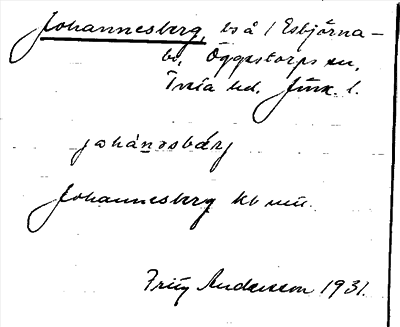 Johannesberg, bs å 1 Esbjörna-
bo, Öggestorps sn,
Tveta hd, Jönk. l.
johánəsbárj
Johannesberg kb mtl.
Fritz Andersson 1931.